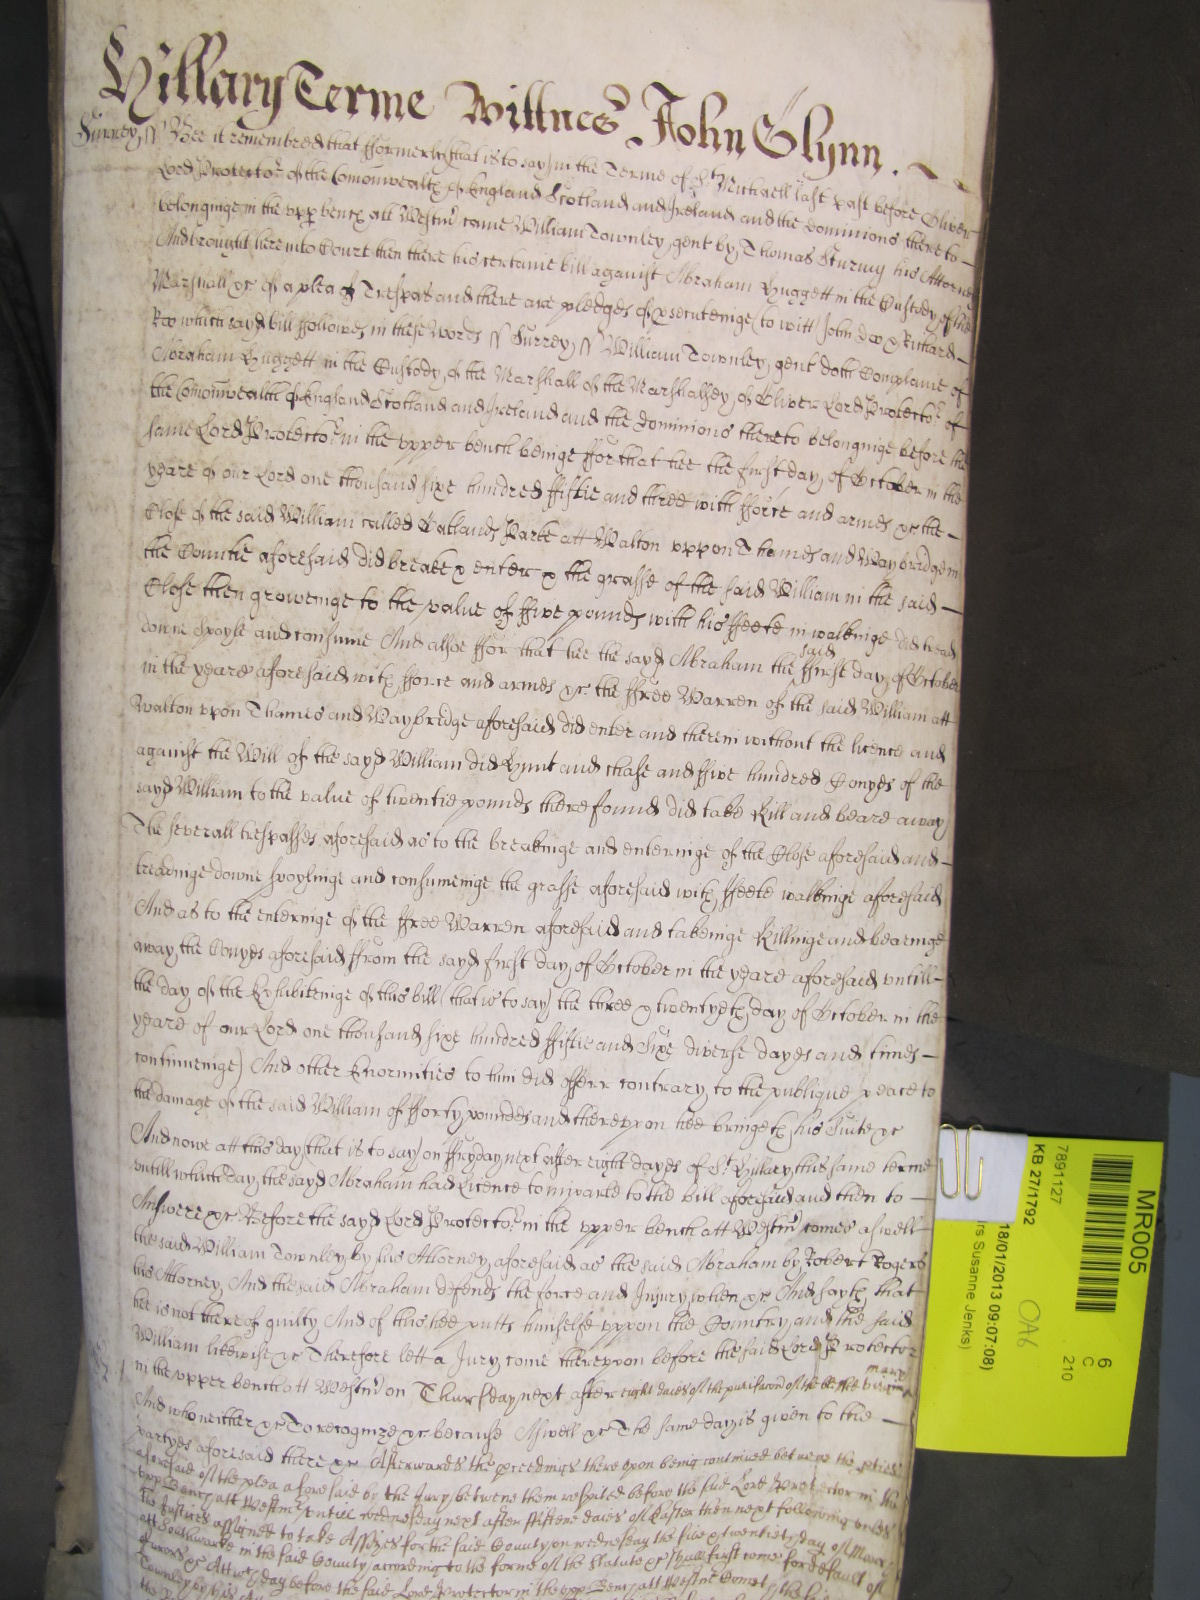 Hillary Terme Wittnes John Glynn.
Surrey ss Bee it remembred that fformerly (that is to say) in the Terme of St Michaell last past before Oliver
Lord Protector of the Comonwealth of England Scotland and Ireland and the Dominions thereto
belonginge in the upp bench att Westmr came William Townley gent by Thomas Sturmy his Attorney
And brought here into Court then there his certaine bill against Abraham Huggett in the Custody of the
Marshall &c of a plea of Trespas and there are pledges of psecuteinge (to witt) John Doo & Richard
Roo which sayd bill ffollowes in these words ss Surrey ss William Townley gent doth Complaine of
Abraham Huggett in the Custody of the Marshall of the Marshallsey of Oliver Lord Protector of
the Comonwealth of England Scotland and Ireland and the Dominions thereto belonginge before the
same Lord Protector in the upper bench beinge ffor that hee the first day of October in the
yeare of our Lord one thousand sixe hundred ffiftie and three with fforce and armes &c the
Close of the said William called Oatlands Parke att Walton uppon Thames and Waybridge in
the Countie aforesaid did breake & enter & the grasse of the said William in the said
Close then groweinge to the value of ffive pounds with his ffeete in walkinge did tread
downe spoyle and consume And alsoe ffor that hee the sayd Abraham the said ffirst day of October
in the yeare aforesaid with fforce and armes &c the ffree Warren of the said William att
Walton upon Thames and Waybridge aforesaid did enter and therein without the licence and
against the Will of the sayd William did Hunt and chase and ffive hundred Conyes of the
sayd William to the value of twentie pounds there found did take Kill and beare away
The severall trespasses aforesaid as to the breakinge and enteringe of the Close aforesaid and
treadinge downe spoylinge and consumeinge the grasse aforesaid with ffeete walkinge aforesaid
And as to the enteringe of the ffree Warren aforesaid and takeinge Killinge and beareinge
away the Conyes aforesaid ffrom the sayd first day of October in the yeare aforesaid untill
the day of the Exhibiteinge of this bill (that is to say) the three & twentyeth day of October in the
yeare of our Lord one thousand sixe hundred ffiftie and Sixe diverse dayes and times
continueinge) And other Enormities to him did offerr contrary to the publique peace to
the damage of the said William of fforty pounds and thereupon hee bringeth his Suite &c
And nowe att this day (that is to say) on ffryday next after eight dayes of St Hillary this same terme
untill which day the sayd Abraham had Licence to imparle to the bill aforesaid and then to
Answere &c Before the sayd Lord Protector in the upper bench att Westmr comes aswell
the said William Townley by his Attorney aforesaid as the said Abraham by Robert Rogers
his Attorney And the said Abraham defends the force and Injury when &c And sayth that
hee is not thereof guilty And of this hee putts himselfe uppon the Country and the said
William likewise &c Therefore lett a Jury come thereupon before the said Lord Protector
in the upper bench att Westmr on Thursday next after eight daies of the purificacon of the blessed virgin mary
And who neither &c To recognize &c because Aswell &c The same day is given to the
partyes aforesaid there &c Afterwards the pceedings thereupon being continued betweene the pties
aforesaid of the plea aforesaid by the Jury betweene them respited before the said Lord Protector in the
upp Bench att Westmr untill wednesday next after ffiftene daies of Easter then next following unles
the Justices assigned to take Assizes for the said County on wednesday the five & twentieth day of March
att Southwarke in the said County according to the forme of the Statute &c shall first come for default of
Jurors &c Att wch day before the said Lord Protector in the upp Bench att Westmr Comes the said
Townley by his
MR005
7891127
KB 27/1792
6
C
210
OA6
18/01/2013 09:07:08)
rs Susanne Jenks)